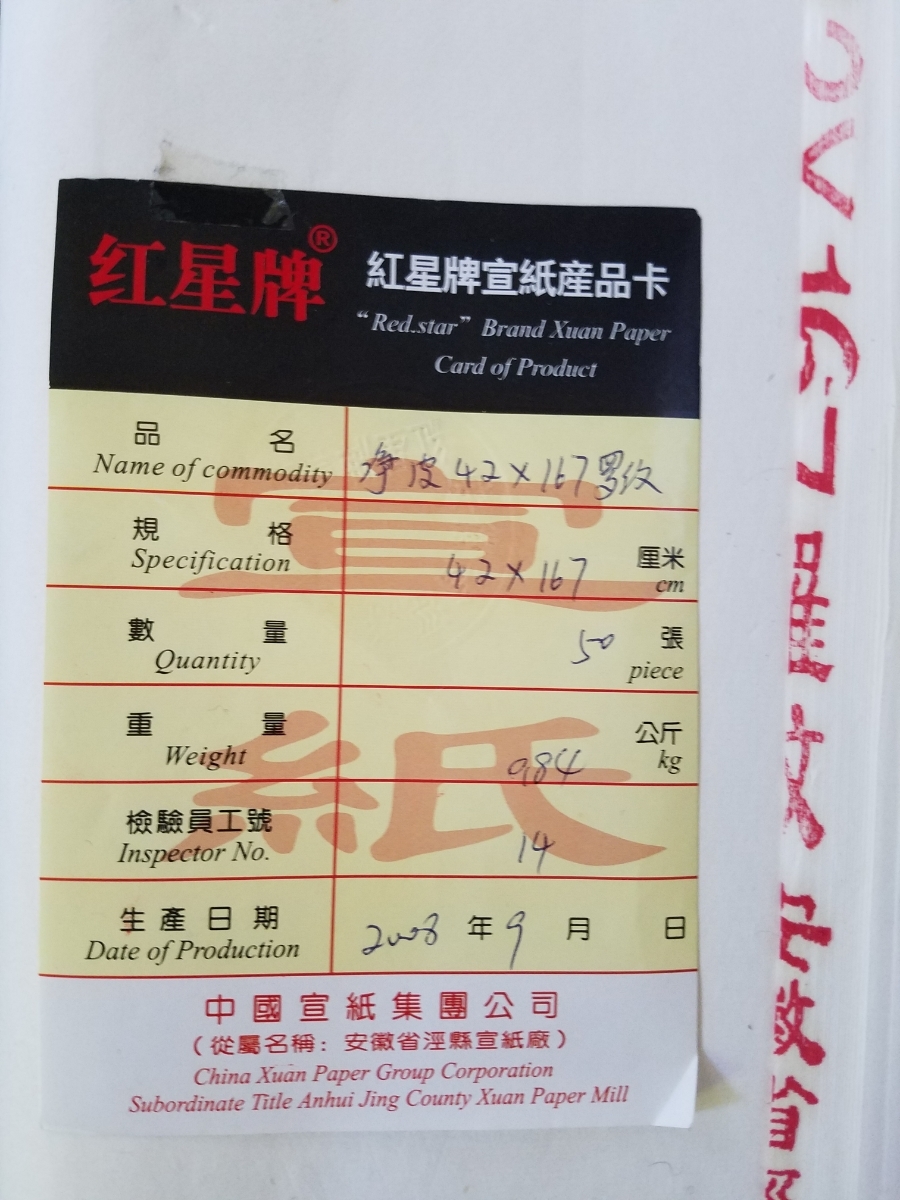 红星牌®
紅星牌宣紙産品卡
“Red.star” Brand Xuan Paper
Card of Product
品 名
Name of commodity
净皮42×167罗纹
規 格
Specification
42×167
厘米
cm
數 量
Quantity
50
張
piece
重 量
Weight
0.84
公斤
kg
檢驗員工號
Inspector No.
14
生產日期
Date of Production
2008 年 9 月 日
宣
紙
中國宣紙集團公司
（從屬名稱：安徽省涇縣宣紙廠）
China Xuan Paper Group Corporation
Subordinate Title Anhui Jing County Xuan Paper Mill
167